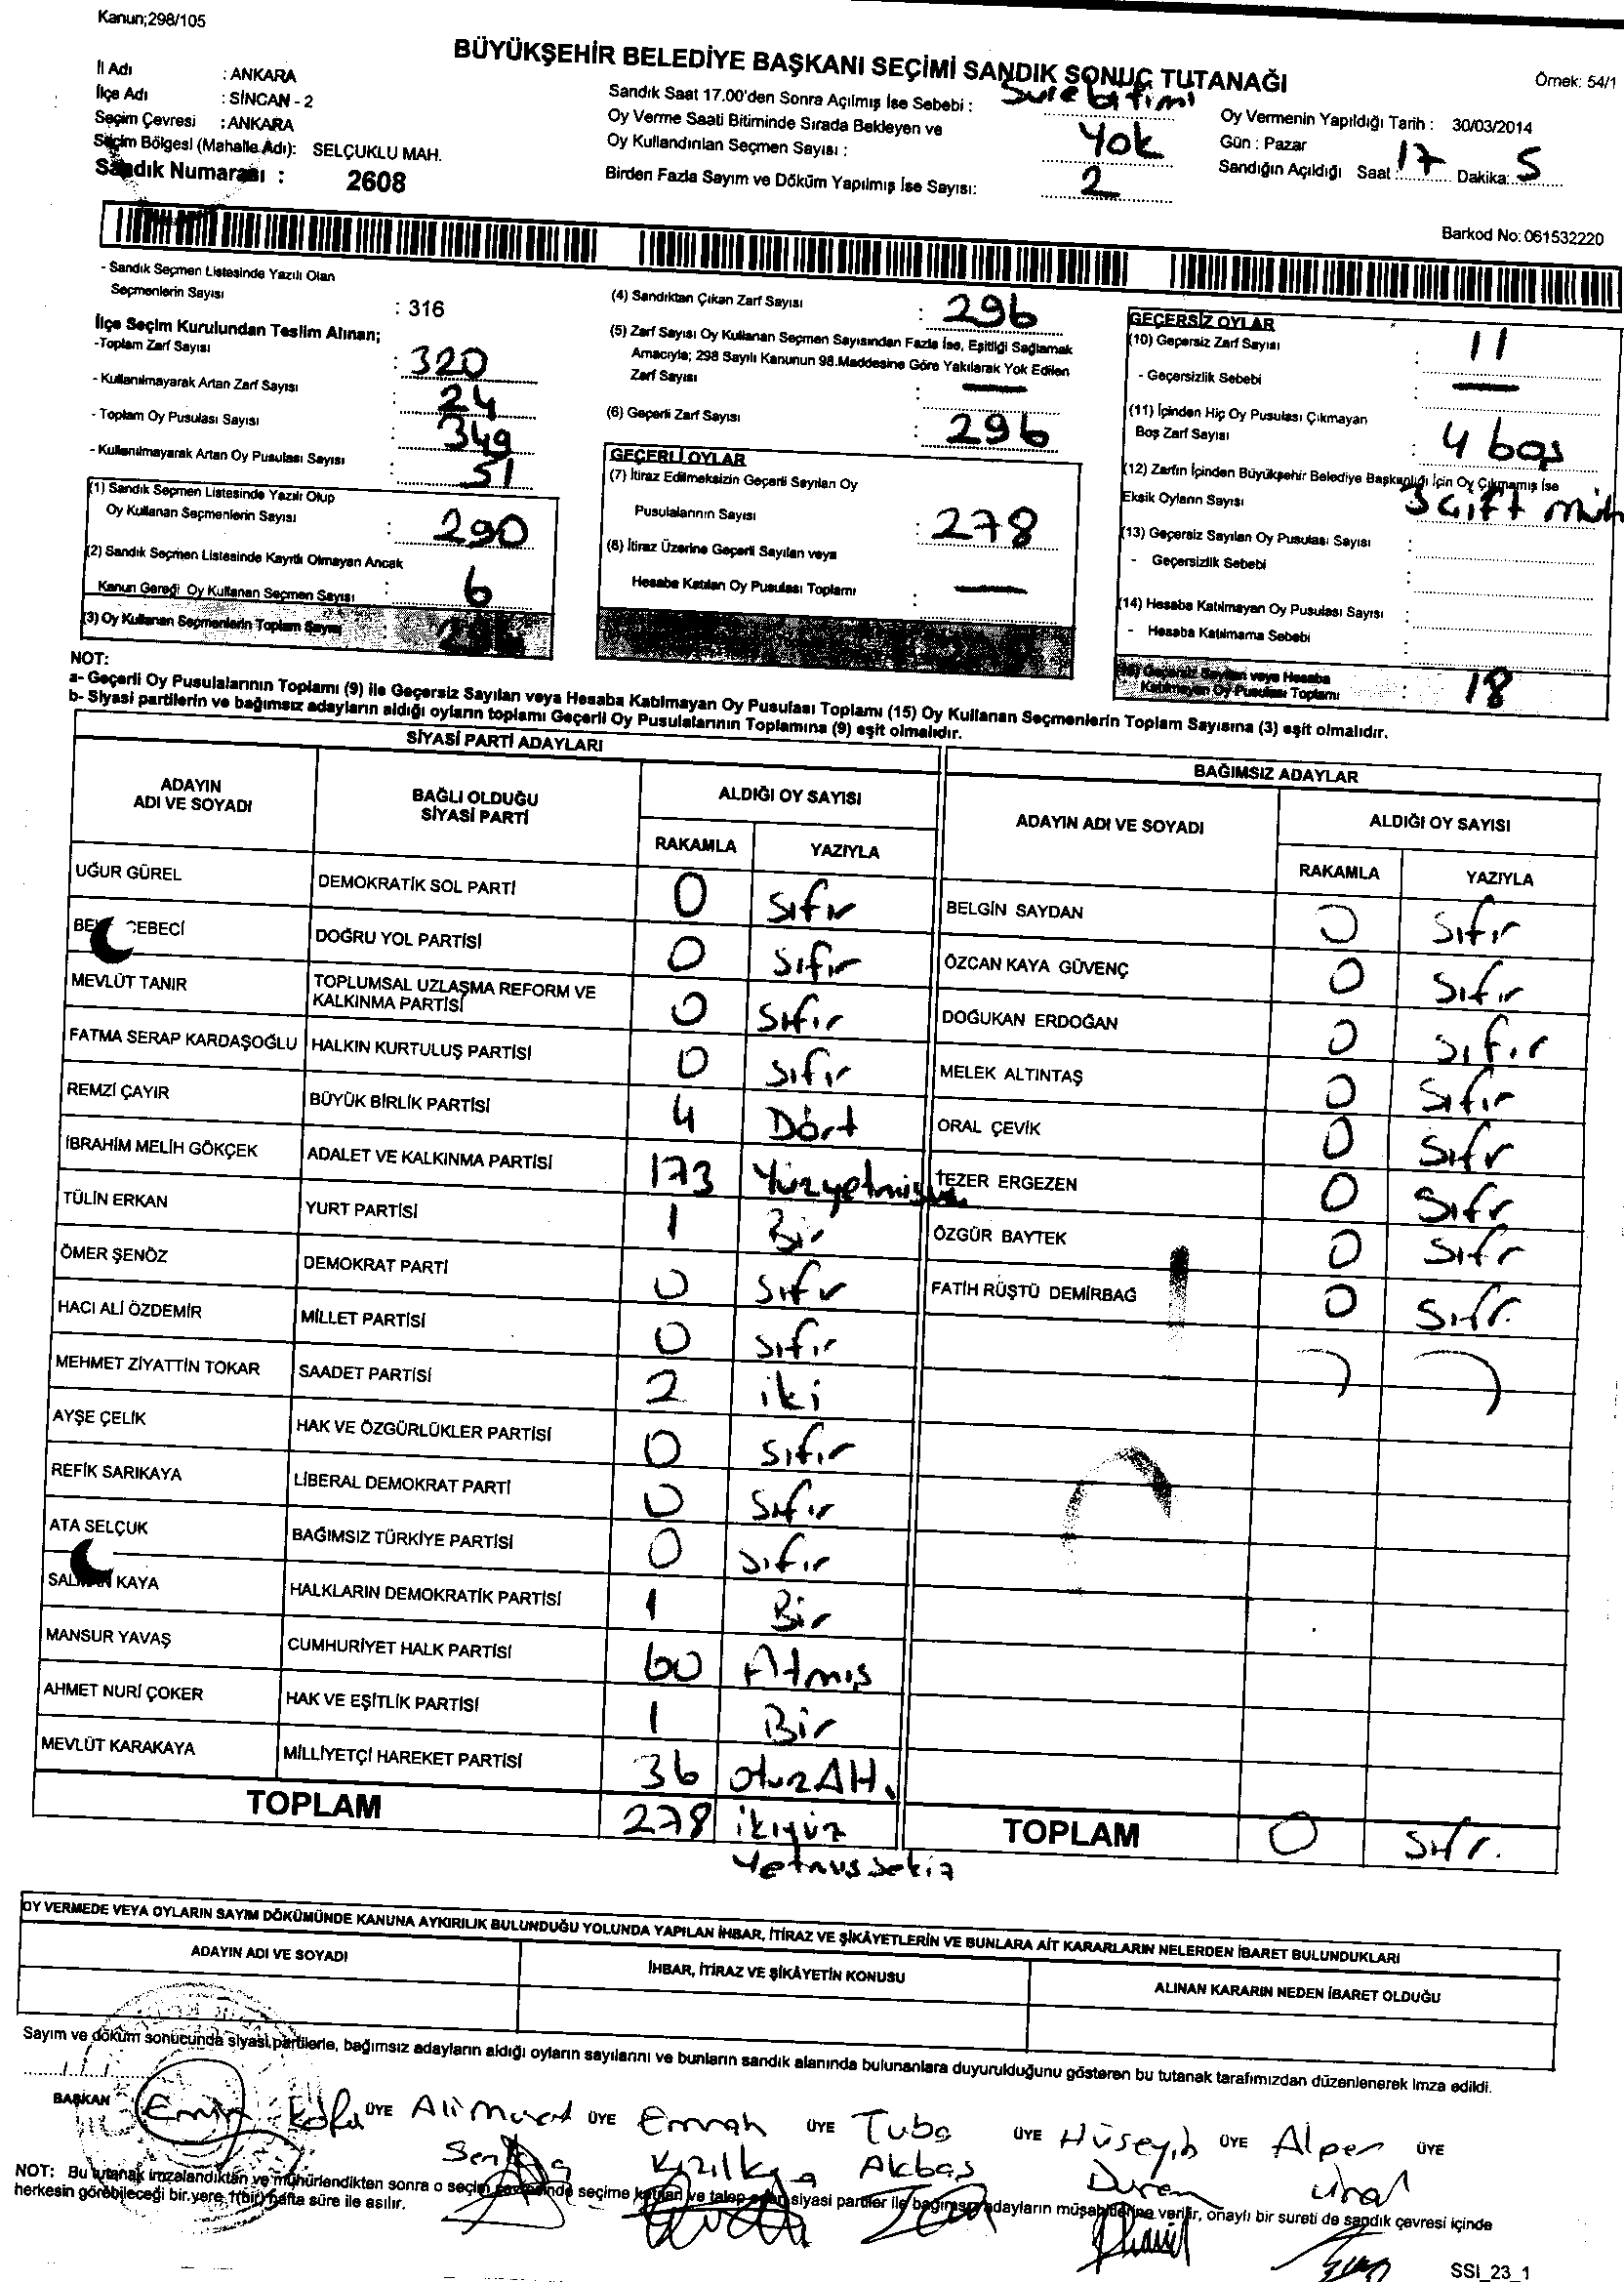 Kanun;298/105
BÜYÜKŞEHİR BELEDİYE BAŞKANI SEÇİMİ SANDIK SONUÇ TUTANAĞI
Örnek: 54/1
İl Adı : ANKARA
İlçe Adı : SİNCAN - 2
Seçim Çevresi : ANKARA
Seçim Bölgesi (Mahalle Adı): SELÇUKLU MAH.
Sandık Numarası : 2608
Sandık Saat 17.00'den Sonra Açılmış İse Sebebi : Süre bitimi
Oy Verme Saati Bitiminde Sırada Bekleyen ve
Oy Kullandırılan Seçmen Sayısı : Yok
Birden Fazla Sayım ve Döküm Yapılmış İse Sayısı: 2
Oy Vermenin Yapıldığı Tarih : 30/03/2014
Gün : Pazar
Sandığın Açıldığı Saat : 17 Dakika: 5
Barkod No: 061532220
- Sandık Seçmen Listesinde Yazılı Olan
Seçmenlerin Sayısı : 316
İlçe Seçim Kurulundan Teslim Alınan;
-Toplam Zarf Sayısı : 320
- Kullanılmayarak Artan Zarf Sayısı : 24
- Toplam Oy Pusulası Sayısı : 349
- Kullanılmayarak Artan Oy Pusulası Sayısı : 51
(1) Sandık Seçmen Listesinde Yazılı Olup
Oy Kullanan Seçmenlerin Sayısı : 290
(2) Sandık Seçmen Listesinde Kayıtlı Olmayan Ancak
Kanun Gereği Oy Kullanan Seçmen Sayısı : 6
(3) Oy Kullanan Seçmenlerin Toplam Sayısı : 296
(4) Sandıktan Çıkan Zarf Sayısı : 296
(5) Zarf Sayısı Oy Kullanan Seçmen Sayısından Fazla İse, Eşitliği Sağlamak
Amacıyla; 298 Sayılı Kanunun 98.Maddesine Göre Yakılarak Yok Edilen
Zarf Sayısı : —
(6) Geçerli Zarf Sayısı : 296
GEÇERLİ OYLAR
(7) İtiraz Edilmeksizin Geçerli Sayılan Oy
Pusulalarının Sayısı : 278
(8) İtiraz Üzerine Geçerli Sayılan veya
Hesaba Katılan Oy Pusulası Toplamı : —
GEÇERSİZ OYLAR
(10) Geçersiz Zarf Sayısı : 11
- Geçersizlik Sebebi : —
(11) İçinden Hiç Oy Pusulası Çıkmayan
Boş Zarf Sayısı : 4 boş
(12) Zarfın İçinden Büyükşehir Belediye Başkanlığı İçin Oy Çıkmamış İse
Eksik Oyların Sayısı 3 çift
(13) Geçersiz Sayılan Oy Pusulası Sayısı :
- Geçersizlik Sebebi :
(14) Hesaba Katılmayan Oy Pusulası Sayısı :
- Hesaba Katılmama Sebebi :
(15) Geçersiz Sayılan veya Hesaba
Katılmayan Oy Pusulası Toplamı : 18
NOT:
a- Geçerli Oy Pusulalarının Toplamı (9) ile Geçersiz Sayılan veya Hesaba Katılmayan Oy Pusulası Toplamı (15) Oy Kullanan Seçmenlerin Toplam Sayısına (3) eşit olmalıdır.
b- Siyasi partilerin ve bağımsız adayların aldığı oyların toplamı Geçerli Oy Pusulalarının Toplamına (9) eşit olmalıdır.
SİYASİ PARTİ ADAYLARI
ADAYIN ADI VE SOYADI BAĞLI OLDUĞU SİYASİ PARTİ ALDIĞI OY SAYISI
RAKAMLA YAZIYLA
UĞUR GÜREL DEMOKRATİK SOL PARTİ 0 sıfır
CEBECİ DOĞRU YOL PARTİSİ 0 sıfır
MEVLÜT TANIR TOPLUMSAL UZLAŞMA REFORM VE KALKINMA PARTİSİ 0 sıfır
FATMA SERAP KARDAŞOĞLU HALKIN KURTULUŞ PARTİSİ 0 sıfır
REMZİ ÇAYIR BÜYÜK BİRLİK PARTİSİ 4 Dört
İBRAHİM MELİH GÖKÇEK ADALET VE KALKINMA PARTİSİ 173 Yüzyetmişüç
TÜLİN ERKAN YURT PARTİSİ 1 Bir
ÖMER ŞENÖZ DEMOKRAT PARTİ 0 sıfır
HACI ALİ ÖZDEMİR MİLLET PARTİSİ 0 sıfır
MEHMET ZİYATTİN TOKAR SAADET PARTİSİ 2 iki
AYŞE ÇELİK HAK VE ÖZGÜRLÜKLER PARTİSİ 0 sıfır
REFİK SARIKAYA LİBERAL DEMOKRAT PARTİ 0 sıfır
ATA SELÇUK BAĞIMSIZ TÜRKİYE PARTİSİ 0 sıfır
SALMAN KAYA HALKLARIN DEMOKRATİK PARTİSİ 1 Bir
MANSUR YAVAŞ CUMHURİYET HALK PARTİSİ 60 Atmış
AHMET NURİ ÇOKER HAK VE EŞİTLİK PARTİSİ 1 Bir
MEVLÜT KARAKAYA MİLLİYETÇİ HAREKET PARTİSİ 36 otuzAltı
TOPLAM 278 ikiyüz
Yetmişsekiz
BAĞIMSIZ ADAYLAR
ADAYIN ADI VE SOYADI ALDIĞI OY SAYISI
RAKAMLA YAZIYLA
BELGİN SAYDAN 0 sıfır
ÖZCAN KAYA GÜVENÇ 0 sıfır
DOĞUKAN ERDOĞAN 0 sıfır
MELEK ALTINTAŞ 0 sıfır
ORAL ÇEVİK 0 sıfır
TEZER ERGEZEN 0 sıfr
ÖZGÜR BAYTEK 0 sıfr
FATİH RÜŞTÜ DEMİRBAĞ 0 sıfr.
TOPLAM 0 sıfr.
OY VERMEDE VEYA OYLARIN SAYIM DÖKÜMÜNDE KANUNA AYKIRILIK BULUNDUĞU YOLUNDA YAPILAN İHBAR, İTİRAZ VE ŞİKÂYETLERİN VE BUNLARA AİT KARARLARIN NELERDEN İBARET BULUNDUKLARI
ADAYIN ADI VE SOYADI İHBAR, İTİRAZ VE ŞİKÂYETİN KONUSU ALINAN KARARIN NEDEN İBARET OLDUĞU
Sayım ve döküm sonucunda siyasi partilerle, bağımsız adayların aldığı oyların sayılarını ve bunların sandık alanında bulunanlara duyurulduğunu gösteren bu tutanak tarafımızdan düzenlenerek imza edildi.
BAŞKAN Emin ÜYE Ali Murat ÜYE Emrah ÜYE Tuba ÜYE Hüseyin ÜYE Alper ÜYE
Kızılkaya Akbaş Duran Ural
NOT: Bu tutanak imzalandıktan ve mühürlendikten sonra o seçim çevresinde seçime katılan ve talep eden siyasi partiler ile bağımsız adayların müşahitlerine verilir, onaylı bir sureti de sandık çevresi içinde
herkesin görebileceği bir yere 1(bir) hafta süre ile asılır.
SSI_23_1